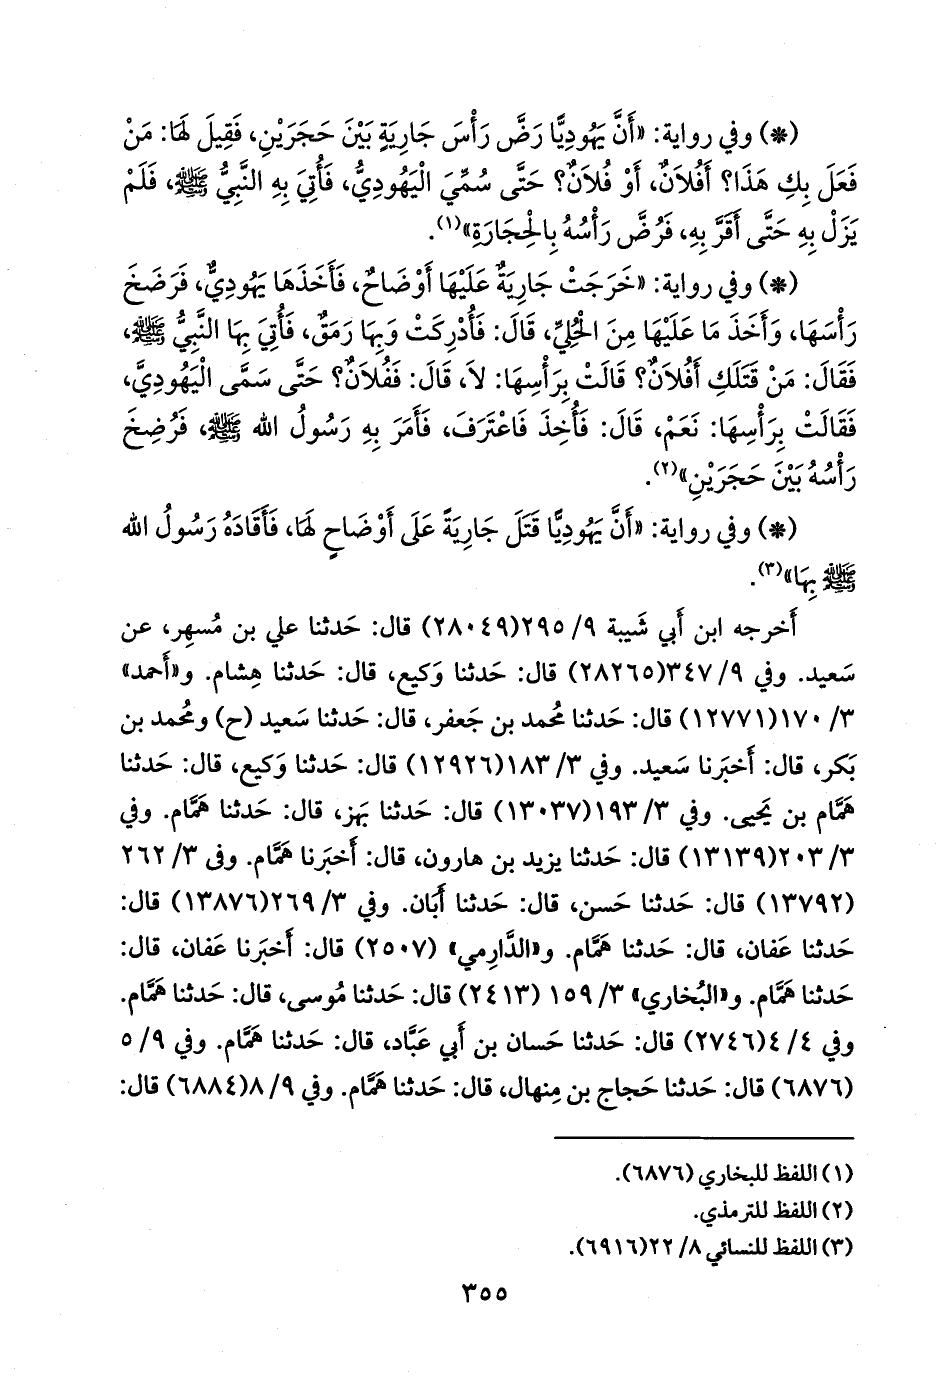 (*) وفي رواية: «أَنَّ يَهُودِيًّا رَضَّ رَأْسَ جَارِيَةٍ بَيْنَ حَجَرَيْنِ، فَقِيلَ لَهَا: مَنْ
فَعَلَ بِكِ هَذَا؟ أَفُلاَنٌ، أَوْ فُلاَنٌ؟ حَتَّى سُمِّيَ الْيَهُودِيُّ، فَأُتِيَ بِهِ النَّبِيُّ ﷺ، فَلَمْ
يَزَلْ بِهِ حَتَّى أَقَرَّ بِهِ، فَرُضَّ رَأْسُهُ بِالْحِجَارَةِ»(١).
(*) وفي رواية: «خَرَجَتْ جَارِيَةٌ عَلَيْهَا أَوْضَاحٌ، فَأَخَذَهَا يَهُودِيٌّ، فَرَضَخَ
رَأْسَهَا، وَأَخَذَ مَا عَلَيْهَا مِنَ الْحُلِيِّ، قَالَ: فَأُدْرِكَتْ وَبِهَا رَمَقٌ، فَأُتِيَ بِهَا النَّبِيُّ ﷺ،
فَقَالَ: مَنْ قَتَلَكِ أَفُلاَنٌ؟ قَالَتْ بِرَأْسِهَا: لاَ، قَالَ: فَفُلاَنٌ؟ حَتَّى سَمَّى الْيَهُودِيَّ،
فَقَالَتْ بِرَأْسِهَا: نَعَمْ، قَالَ: فَأُخِذَ فَاعْتَرَفَ، فَأَمَرَ بِهِ رَسُولُ الله ﷺ، فَرُضِخَ
رَأْسُهُ بَيْنَ حَجَرَيْنِ»(٢).
(*) وفي رواية: «أَنَّ يَهُودِيًّا قَتَلَ جَارِيَةً عَلَى أَوْضَاحٍ لَهَا، فَأَقَادَهُ رَسُولُ الله
ﷺ بِهَا»(٣).
أَخرجه ابن أَبي شَيبة ٩/ ٢٩٥(٢٨٠٤٩) قال: حَدثنا علي بن مُسهِر، عن
سَعيد. وفي ٩/ ٣٤٧(٢٨٢٦٥) قال: حَدثنا وَكيع، قال: حَدثنا هِشام. و«أَحمد»
٣/ ١٧٠(١٢٧٧١) قال: حَدثنا مُحمد بن جَعفر، قال: حَدثنا سَعيد (ح) ومُحمد بن
بَكر، قال: أَخبَرنا سَعيد. وفي ٣/ ١٨٣(١٢٩٢٦) قال: حَدثنا وَكيع، قال: حَدثنا
هَمَّام بن يَحيى. وفي ٣/ ١٩٣(١٣٠٣٧) قال: حَدثنا بَهز، قال: حَدثنا هَمَّام. وفي
٣/ ٢٠٣(١٣١٣٩) قال: حَدثنا يزيد بن هارون، قال: أَخبَرنا هَمَّام. وفى ٣/ ٢٦٢
(١٣٧٩٢) قال: حَدثنا حَسن، قال: حَدثنا أَبَان. وفي ٣/ ٢٦٩(١٣٨٧٦) قال:
حَدثنا عَفان، قال: حَدثنا هَمَّام. و«الدَّارِمي» (٢٥٠٧) قال: أَخبَرنا عَفان، قال:
حَدثنا هَمَّام. و«البُخاري» ٣/ ١٥٩ (٢٤١٣) قال: حَدثنا مُوسى، قال: حَدثنا هَمَّام.
وفي ٤/ ٤(٢٧٤٦) قال: حَدثنا حَسان بن أَبي عَبَّاد، قال: حَدثنا هَمَّام. وفي ٩/ ٥
(٦٨٧٦) قال: حَدثنا حَجاج بن مِنهال، قال: حَدثنا هَمَّام. وفي ٩/ ٨(٦٨٨٤) قال:
(١) اللفظ للبخاري (٦٨٧٦).
(٢) اللفظ للترمذي.
(٣) اللفظ للنسائي ٨/ ٢٢(٦٩١٦).
٣٥٥